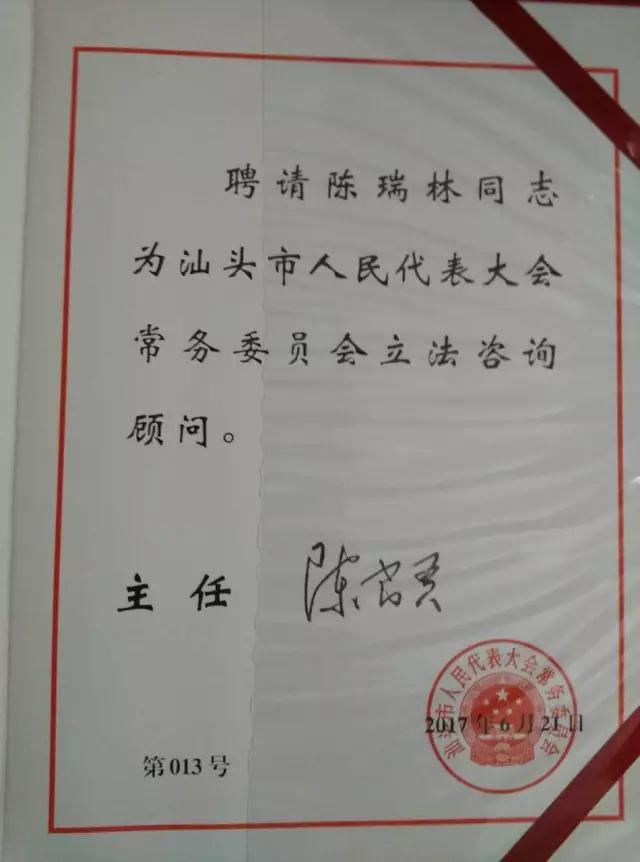 聘请陈瑞林同志
为汕头市人民代表大会
常务委员会立法咨询
顾问。
主任
汕头市人民代表大会常务委员会
2017年6月21日
第013号